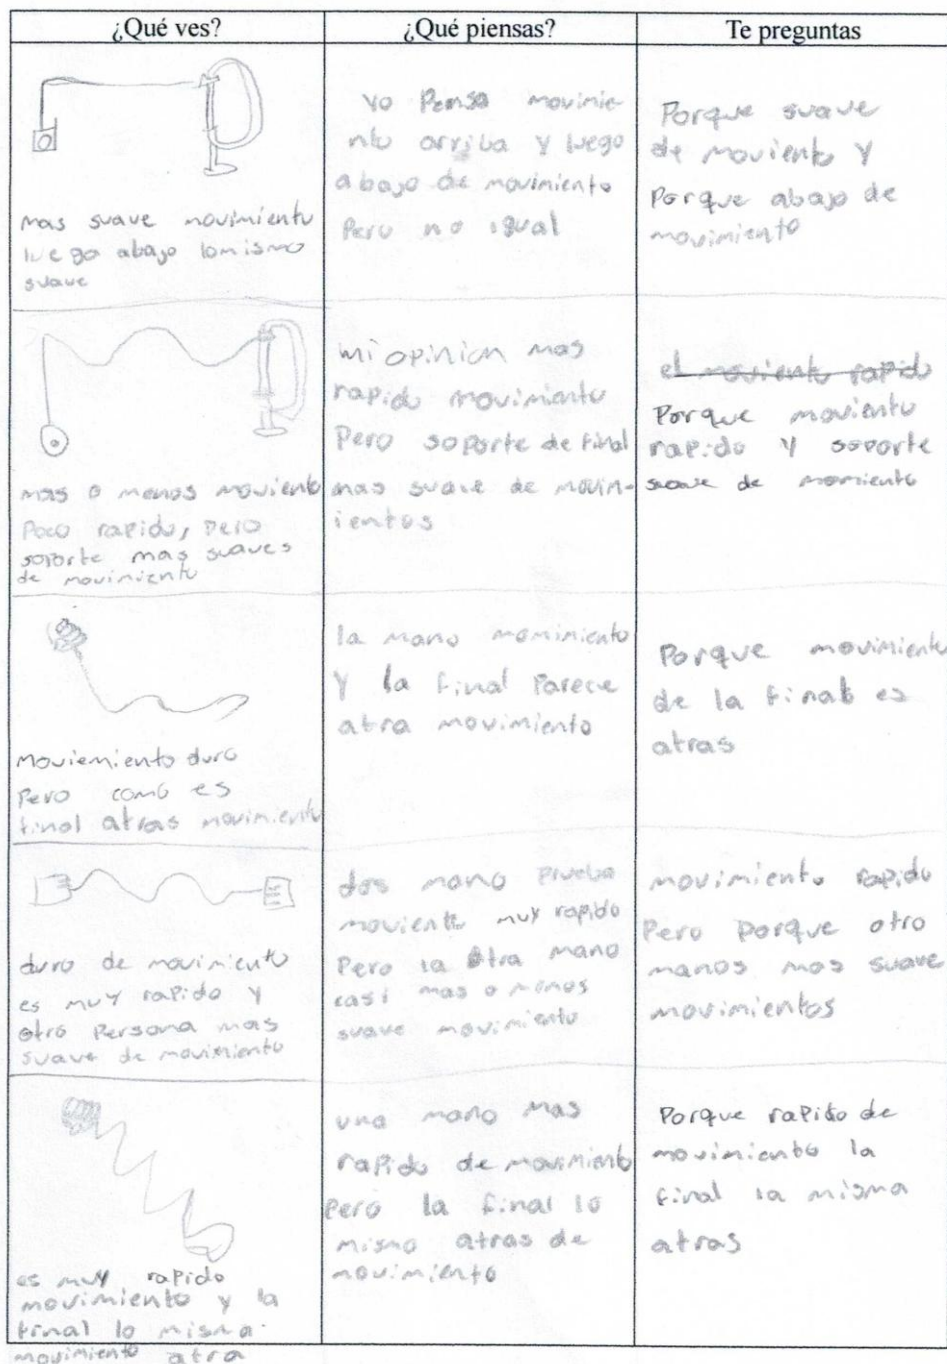 ¿Qué ves?
¿Qué piensas?
Te preguntas
mas suave movimiento
luego abajo lo mismo
suave
Yo Pensa movimie
nto arriba y luego
abajo de movimiento
Pero no igual
Porque suave
de moviento y
Porque abajo de
movimiento
mas o menos moviento
Poco rapido, pero
soporte mas suaves
de movimiento
mi opinion mas
rapido movimiento
Pero soporte de final
mas suave de movim-
ientos
el moviento rapido
Porque moviento
rapido y soporte
suave de momiento
Moviemiento duro
Pero como es
final atras movimiento
la mano momimiento
y la final Parece
atra movimiento
Porque movimiento
de la final es
atras
duro de movimiento
es muy rapido y
otro Persona mas
suave de movimiento
dos mano Prueba
moviento muy rapido
Pero la otra mano
casi mas o menos
suave movimiento
movimiento rapido
Pero porque otro
manos mas suave
movimientos
es muy rapido
movimiento y la
final lo misma
movimiento atra
una mano mas
rapido de movimiento
Pero la final lo
mismo atras de
movimiento
Porque rapido de
movimiento la
final la misma
atras